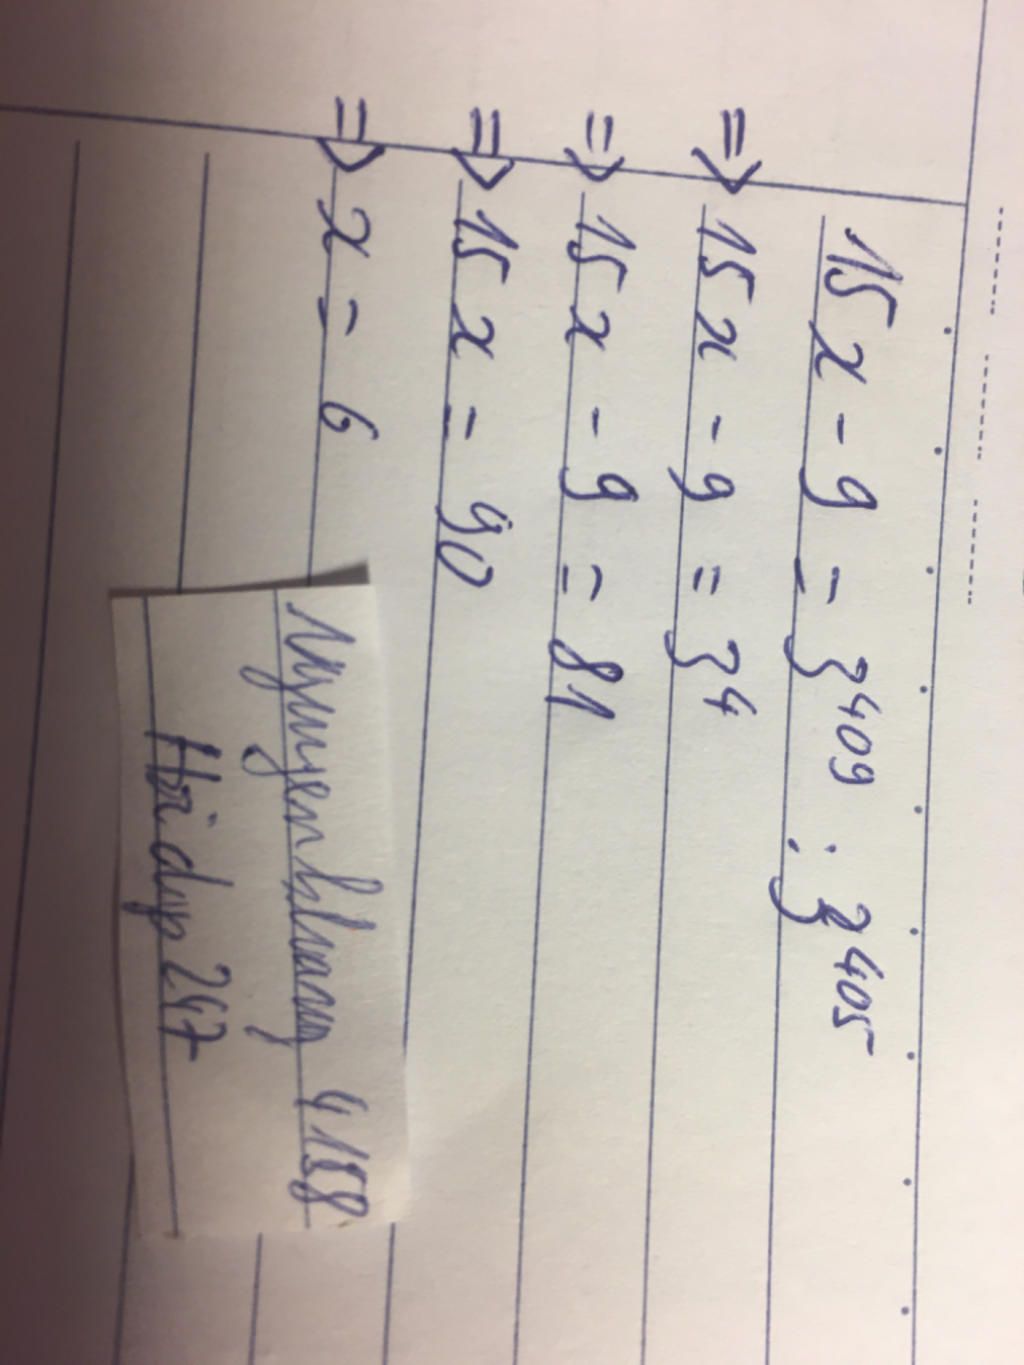 15x - 9 = 3⁴⁰⁹ : 3⁴⁰⁵
=> 15x - 9 = 3⁴
=> 15x - 9 = 81
=> 15x = 90
=> x = 6
Nguyenhhang 4188
Hoidap 247